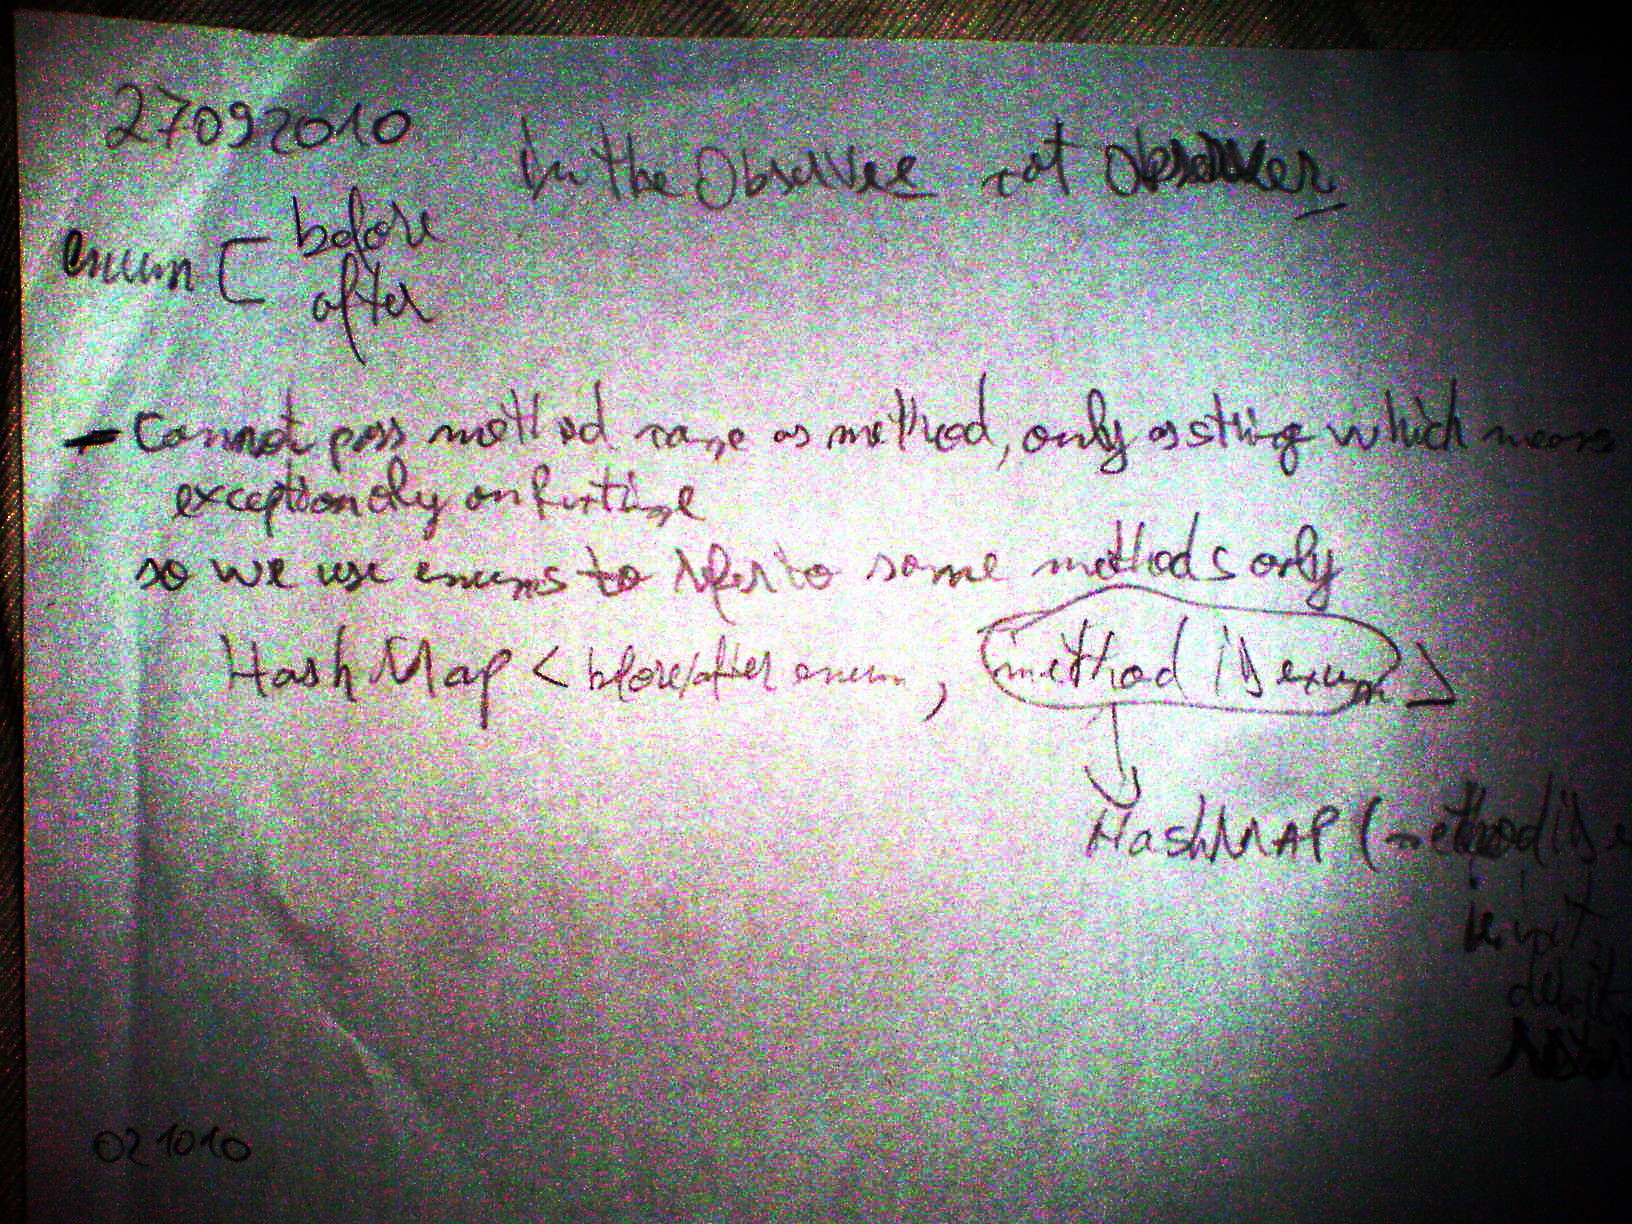 27092010
In the Observee not Observer
enum [ before
after
- Cannot pass method name as method, only as string which means
exception only on Runtime
so we use enums to refer to some methods only
HashMap < before/after enum, method id enum >
HashMAP (method id
init
deinit
restar
021010